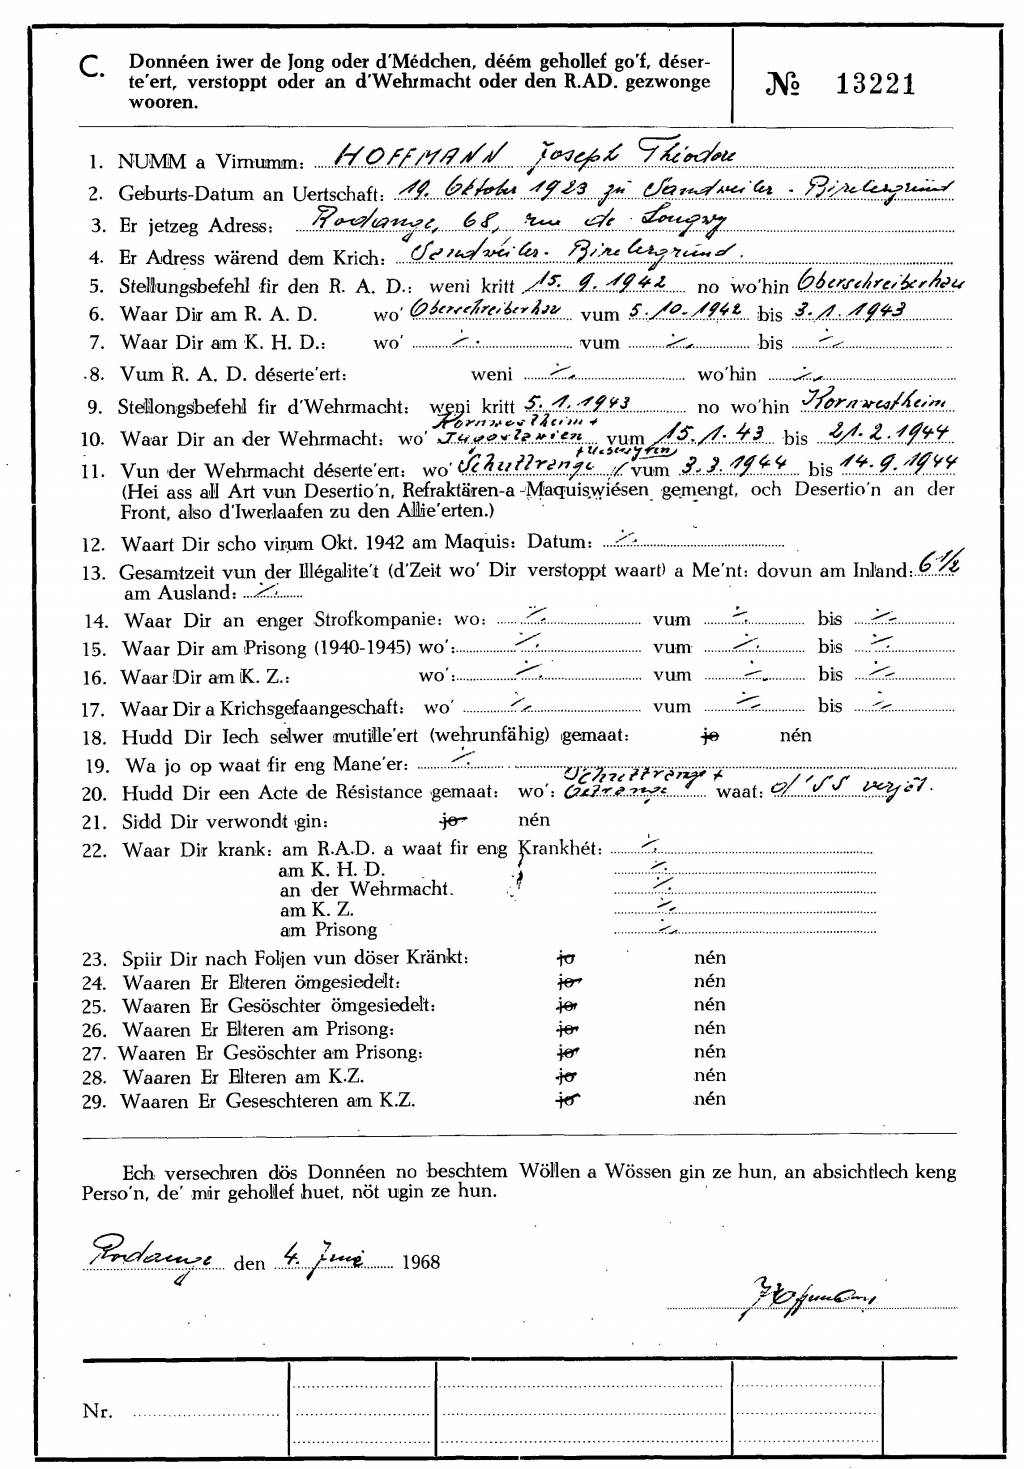 C. Donnéen iwer de Jong oder d'Médchen, déém gehollef go'f, déser-
te'ert, verstoppt oder an d'Wehrmacht oder den R.AD. gezwonge
wooren.
№ 13221
1. NUMM a Virnumm: HOFFMANN Joseph Théodore
2. Geburts-Datum an Uertschaft: 19. Oktober 1923 zu Sandweiler - Birelergrund
3. Er jetzeg Adress: Rodange, 68, rue de Longwy
4. Er Adress wärend dem Krich: Sandweiler - Birelergrund.
5. Stellungsbefehl fir den R. A. D.: weni kritt 15. 9. 1942 no wo'hin Oberschreiberhau
6. Waar Dir am R. A. D. wo' Oberschreiberhau vum 5. 10. 1942 bis 3. 1. 1943
7. Waar Dir am K. H. D.: wo' ./. vum ./. bis ./.
8. Vum R. A. D. déserte'ert: weni ./. wo'hin ./.
9. Stellongsbefehl fir d'Wehrmacht: weni kritt 5. 1. 1943 no wo'hin Kornwestheim
Kornwestheim +
10. Waar Dir an der Wehrmacht: wo' Jugoslawien vum 15. 1. 43 bis 21. 2. 1944
11. Vun der Wehrmacht déserte'ert: wo' Schuttrange vum 3. 3. 1944 bis 14. 9. 1944
(Hei ass all Art vun Desertio'n, Refraktären-a -Maquiswiésen gemengt, och Desertio'n an der
Front, also d'Iwerlaafen zu den Allie'erten.)
12. Waart Dir scho virum Okt. 1942 am Maquis: Datum: ./.
13. Gesamtzeit vun der Illégalite't (d'Zeit wo' Dir verstoppt waart) a Me'nt: dovun am Inland: 6 1/2
am Ausland: ./.
14. Waar Dir an enger Strofkompanie: wo: ./. vum ./. bis ./.
15. Waar Dir am Prisong (1940-1945) wo': ./. vum ./. bis ./.
16. Waar Dir am K. Z.: wo': ./. vum ./. bis ./.
17. Waar Dir a Krichsgefaangeschaft: wo' ./. vum ./. bis ./.
18. Hudd Dir Iech selwer mutille'ert (wehrunfähig) gemaat: jo nén
19. Wa jo op waat fir eng Mane'er: ./.
Schuttrange +
20. Hudd Dir een Acte de Résistance gemaat: wo': Oetrange waat: d'SS verjot.
21. Sidd Dir verwondt gin: jo nén
22. Waar Dir krank: am R.A.D. a waat fir eng Krankhét: ./.
am K. H. D. ./.
an der Wehrmacht. ./.
am K. Z. ./.
am Prisong ./.
23. Spiir Dir nach Foljen vun döser Kränkt: jo nén
24. Waaren Er Elteren ömgesiedelt: jo nén
25. Waaren Er Gesöschter ömgesiedelt: jo nén
26. Waaren Er Elteren am Prisong: jo nén
27. Waaren Er Gesöschter am Prisong: jo nén
28. Waaren Er Elteren am K.Z. jo nén
29. Waaren Er Geseschteren am K.Z. jo nén
Ech versechren dös Donnéen no beschtem Wöllen a Wössen gin ze hun, an absichtlech keng
Perso'n, de' mir gehollef huet, nöt ugin ze hun.
Rodange den 4. Juni 1968
JHoffmann
Nr.